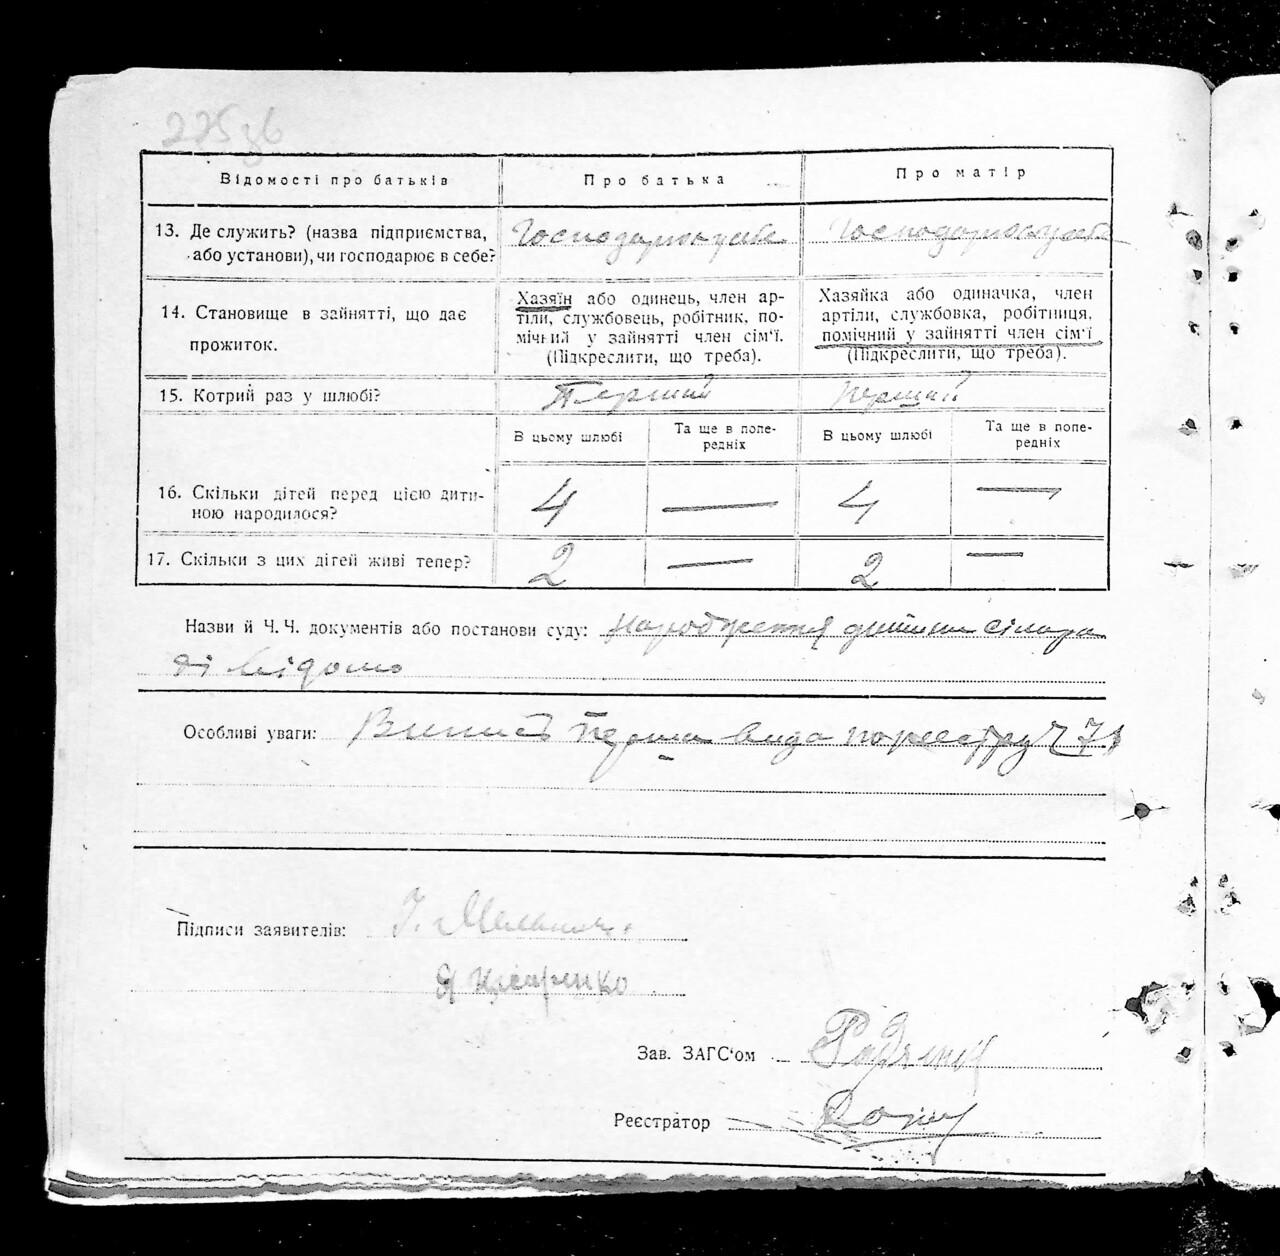 275 зв
Відомості про батьків
Про батька
Про матір
13. Де служить? (назва підприємства,
або установи), чи господарює в себе?
14. Становище в зайнятті, що дає
прожиток.
Хазяїн або одинець, член ар-
тіли, службовець, робітник, по-
мічний у зайнятті член сім'ї.
(Підкреслити, що треба).
Хазяйка або одиначка, член
артіли, службовка, робітниця,
помічний у зайнятті член сім'ї
(Підкреслити, що треба).
15. Котрий раз у шлюбі?
Перший
Перший
В цьому шлюбі
Та ще в попе-
редніх
В цьому шлюбі
Та ще в попе-
редніх
16. Скільки дітей перед цією дити-
ною народилося?
4
—
4
—
17. Скільки з цих дітей живі тепер?
2
—
2
—
Назви й Ч. Ч. документів або постанови суду: народження дитини сільра
ді відомо
Особливі уваги: Випис перша вида по реестру
Підписи заявителів:
Зав. ЗАГС'ом
Реєстратор